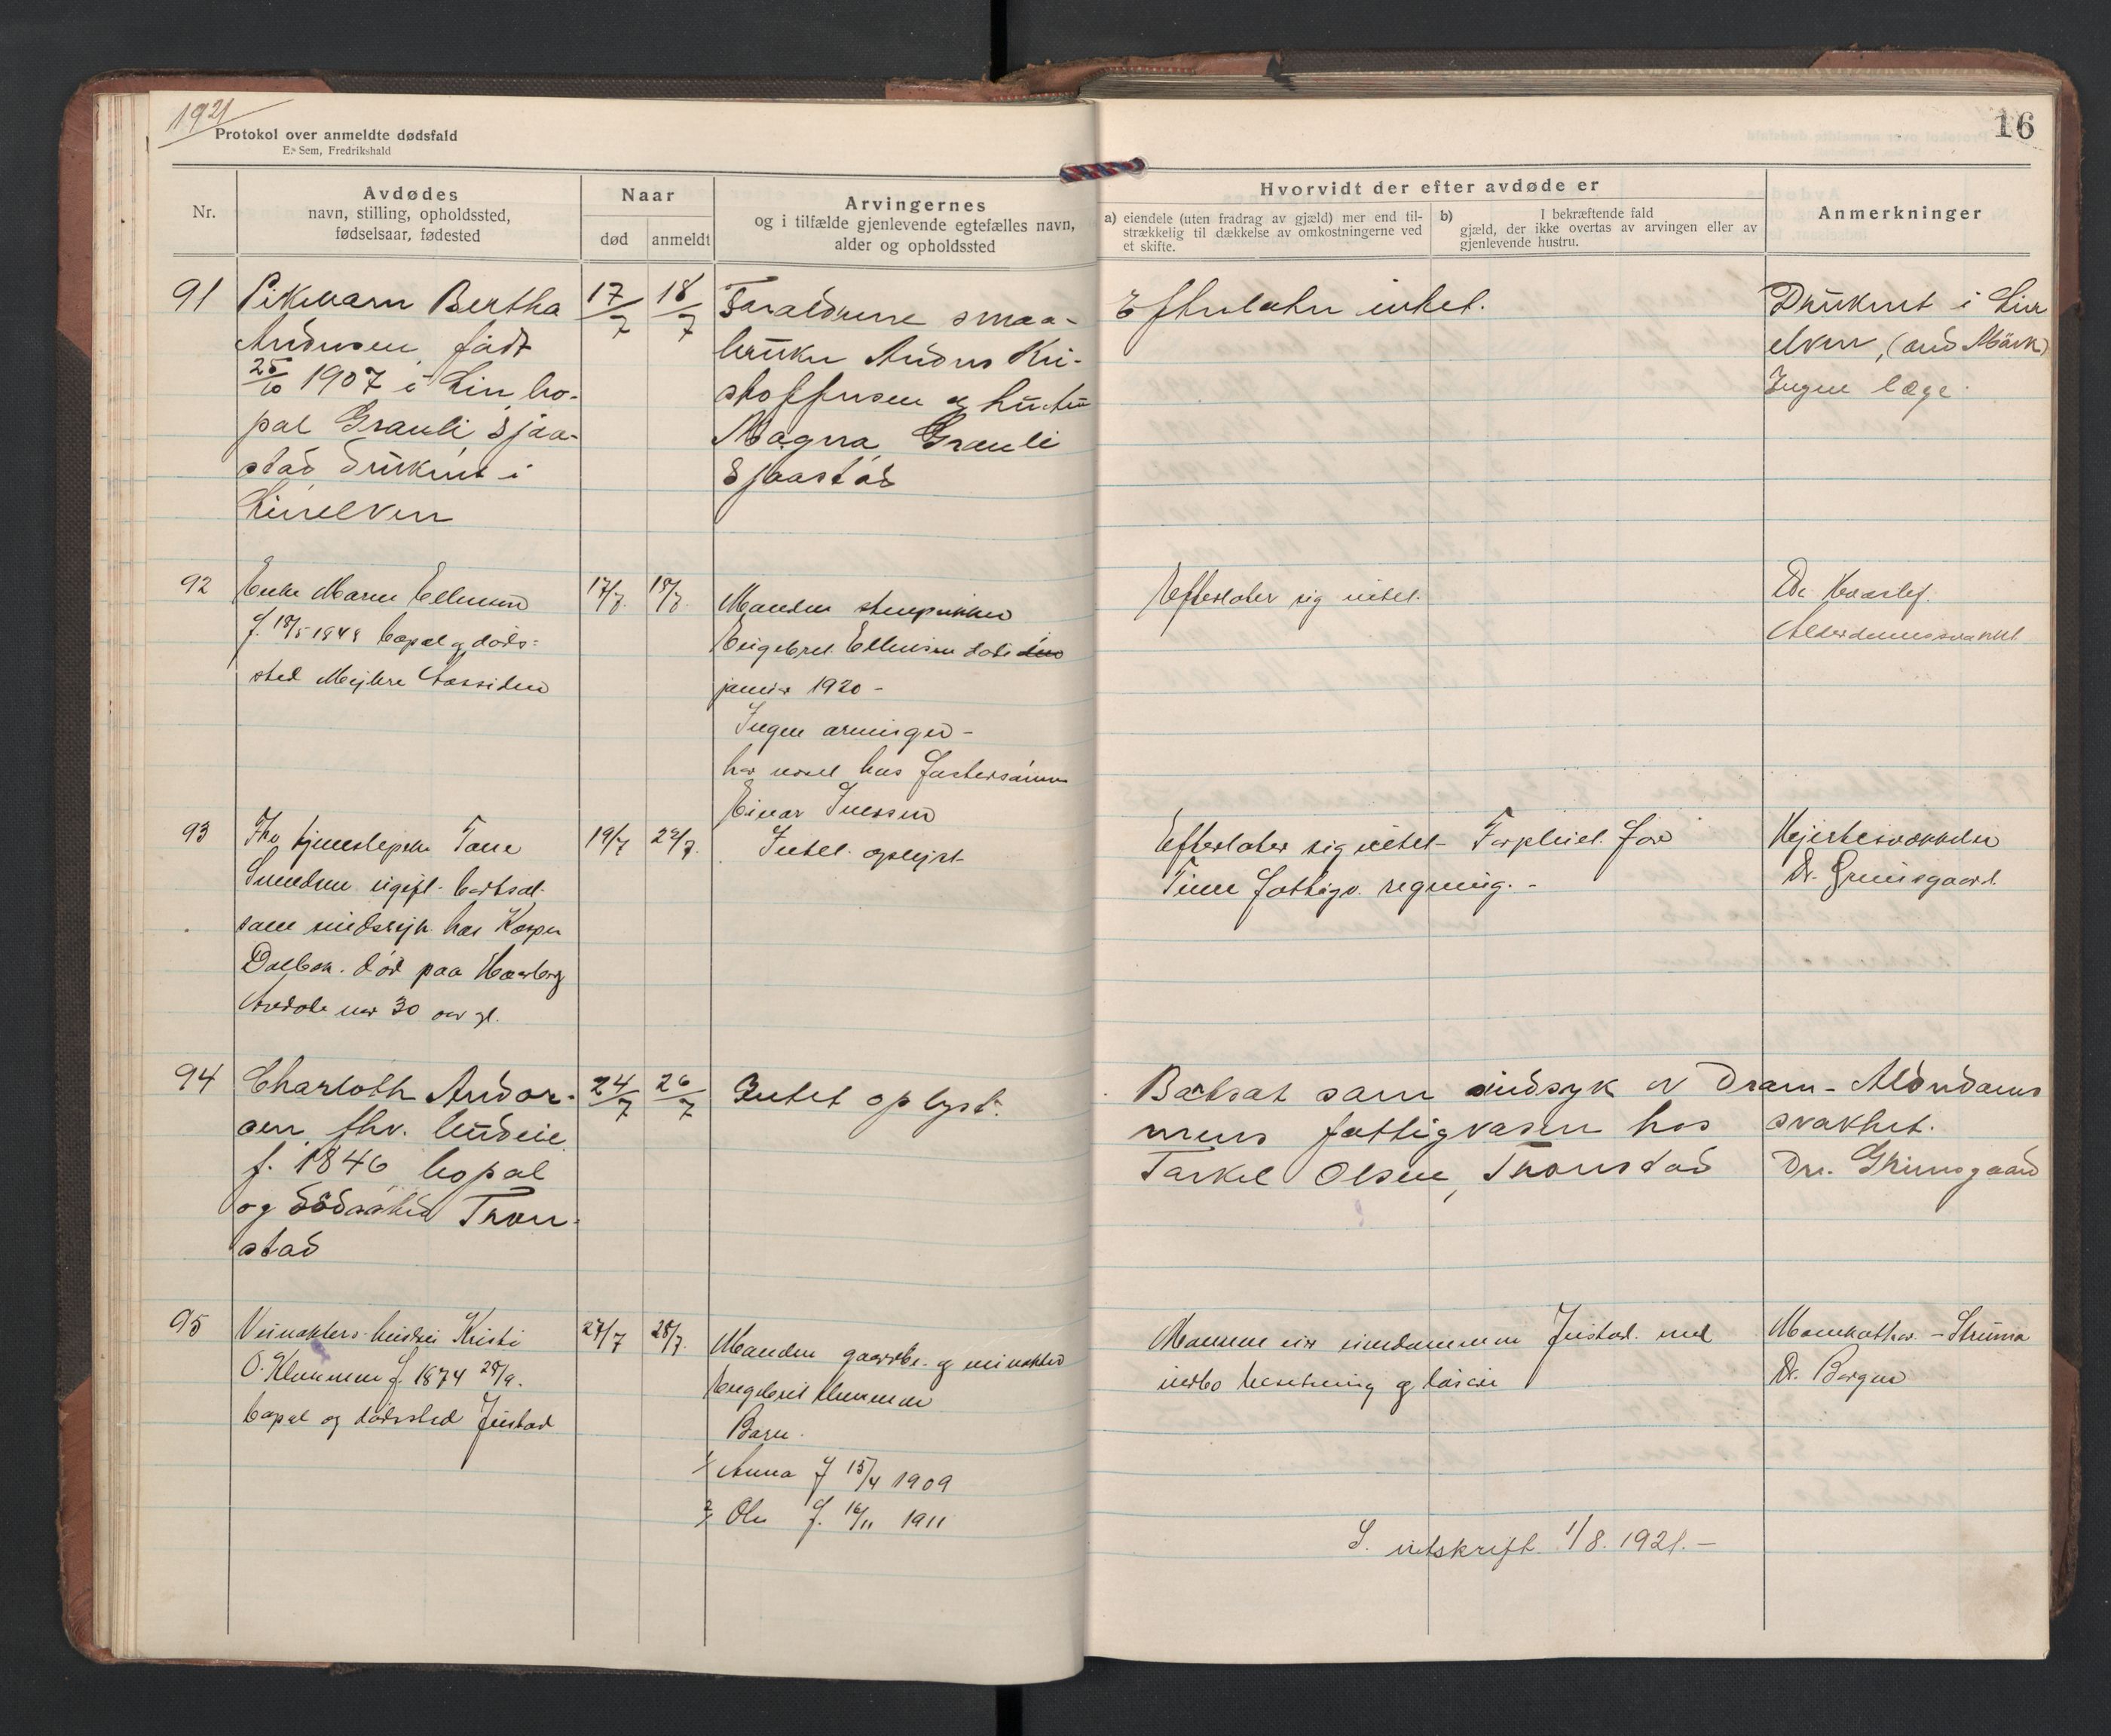 1921
Protokol over anmeldte dødsfald
E. Sem, Fredrikshald
16
Nr.
Avdødes
navn, stilling, opholdssted,
fødselsaar, fødested
Naar
død
anmeldt
Arvingernes
og i tilfælde gjenlevende egtefælles navn,
alder og opholdssted
Hvorvidt der efter avdøde er
a) eiendele (uten fradrag av gjæld) mer end til-
strækkelig til dækkelse av omkostningerne ved
et skifte.
b) I bekræftende fald
gjæld, der ikke overtas av arvingen eller av
gjenlevende hustru.
Anmerkninger
91
Pikebarn Bertha
Andersen, født
25/10 1907 i Lier bo-
pæl Grauli Sjaa-
stad druknet i
Lierelven
17/7
18/7
Forældrene smaa-
bruker Anders Kri-
stoffersen og hustru
Magna, Grauli
Sjaastad
Efterlater intet.
Druknet i Lier
elven,
Ingen læge.
92
Enke Maren Ellensen
f. 18/5 1848 bopæl og døds-
sted
17/7
18/7
Manden
Engebret Ellensen døde
januar 1920 -
Ingen arvinger -
har været hos fostersønn
Einar
Efterlater sig intet.
Dr.
Alderdomssvakhet
93
Fhv tjenestepike
Dalbak. død paa Haarberg
Avdøde var 30 aar gl.
19/7
22/7
Intet oplyst
Efterlater sig intet - Forpleiet for
fattigv. regning. -
Hjertesvækkelse
Dr. Grimsgaard
94
Charlotte Andor-
sen, fhv. budeie
f. 1846 bopæl
og dødssted Tron-
stad
24/7
26/7
Intet oplyst.
Bortsat som sindsyk av Dram-
mens fattigvæsen hos
Torkel Olsen, Tronstad
Alderdoms
svakhet.
Dr. Grimsgaard
95
Veivokters hustru Kristi
O. f. 1874 28/9.
bopæl og dødssted Justad
27/7
28/7
Manden gaardbr. og veivokter
Engebret
Barn.
1/ Anna f 15/4 1909
2/ Ole f. 16/11 1911
Mannen eier eiendommen Justad med
indbo besetning og løsøre
Struma
Dr. Borgen
S. utskrift 1/8. 1921. -